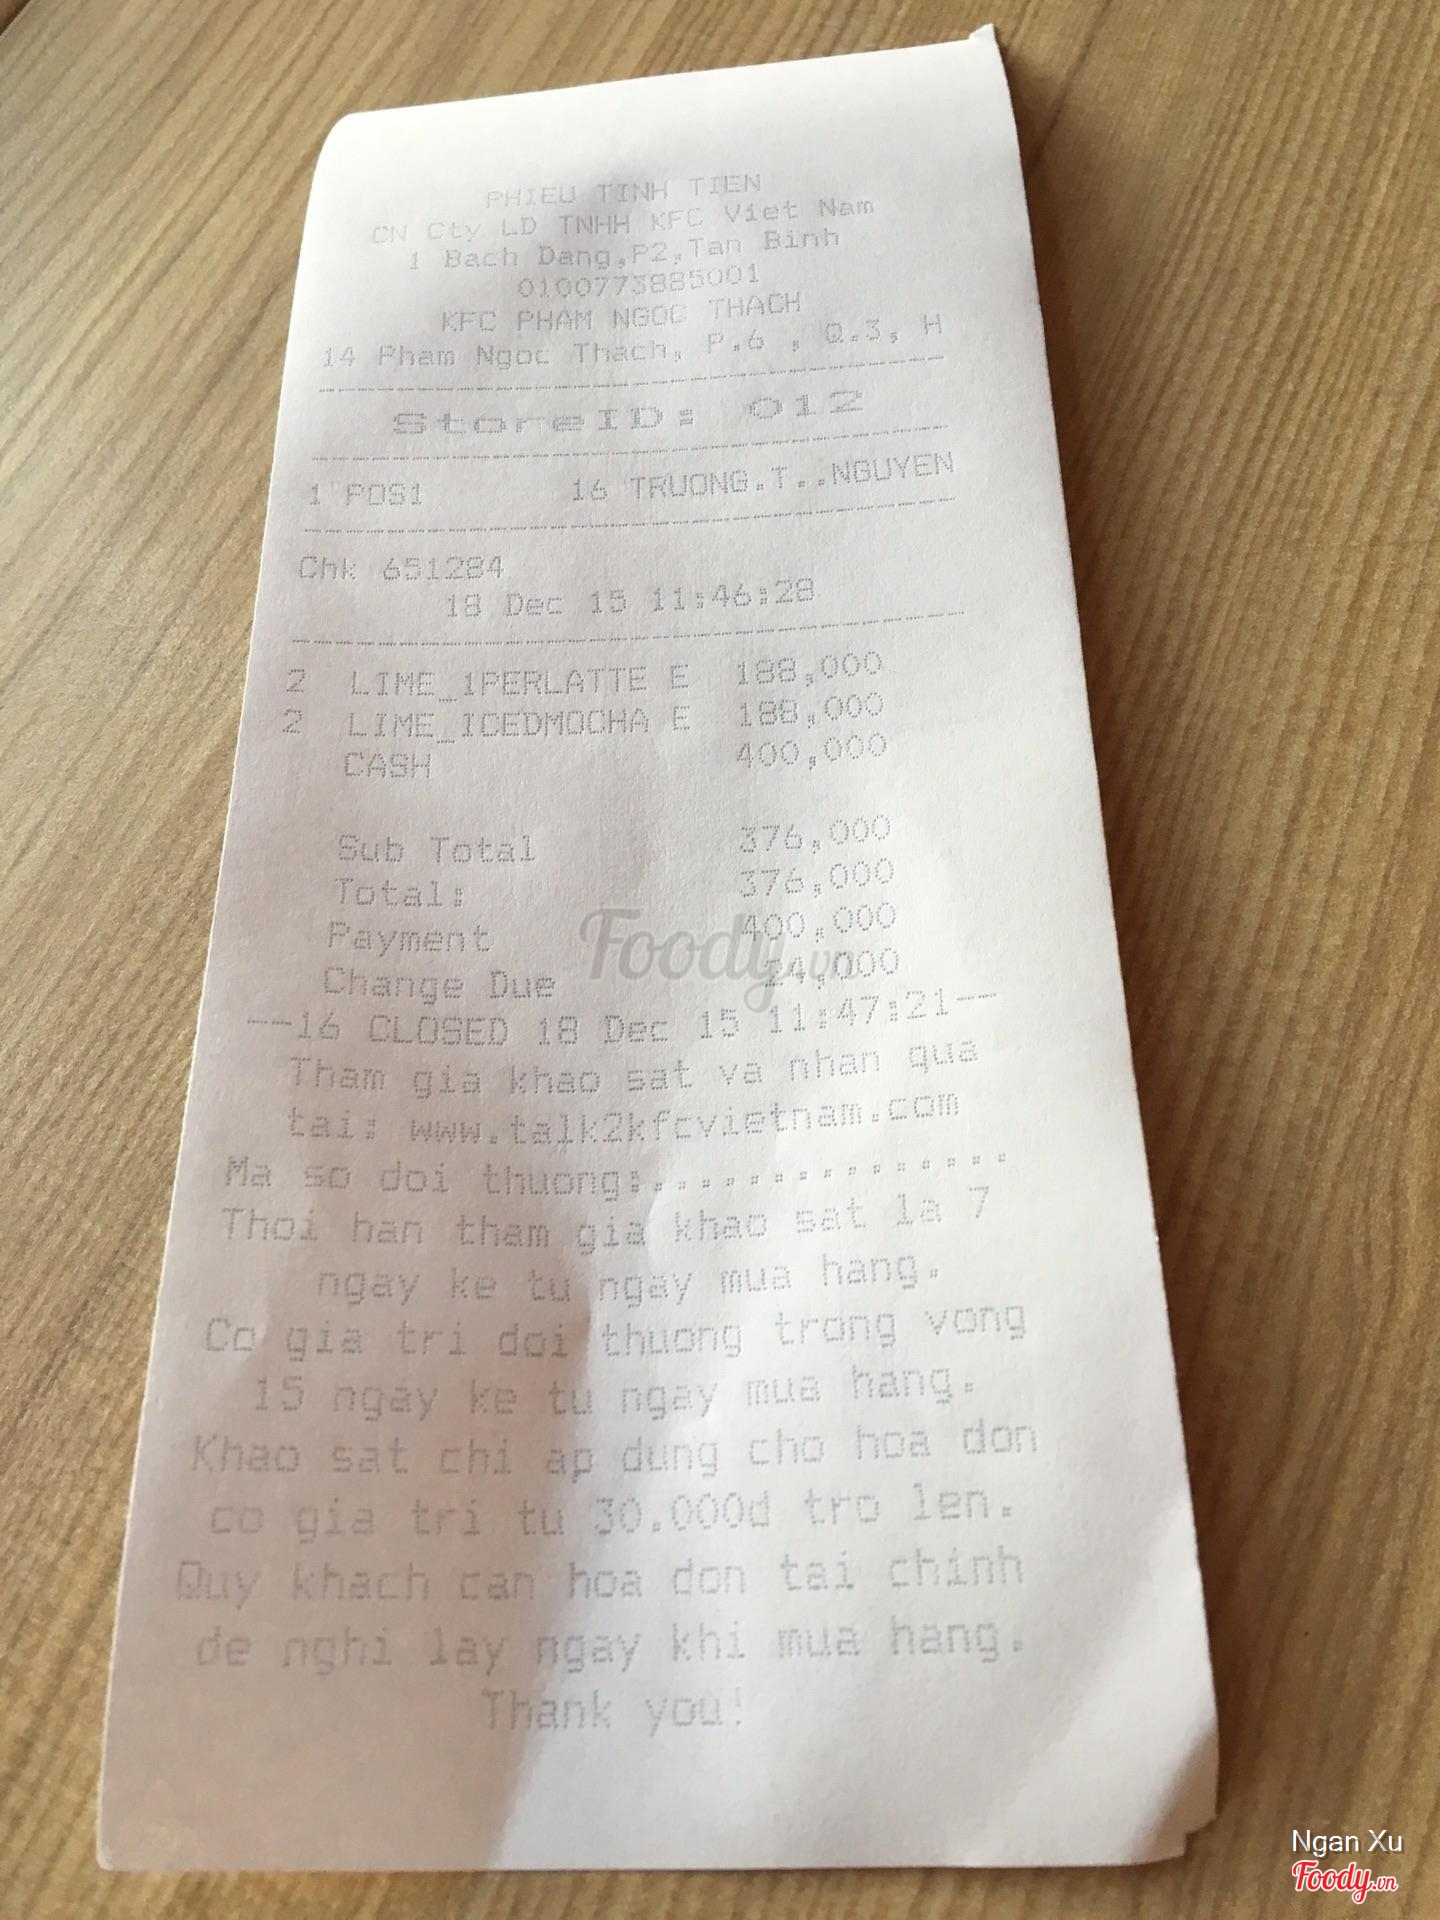 PHIEU TINH TIEN
CN Cty LD TNHH KFC Viet Nam
1 Bach Dang,P2,Tan Binh
0100773885001
KFC PHAM NGOC THACH
14 Pham Ngoc Thach, P.6 , Q.3, H
StoreID: 012
1 POS1 16 TRUONG.T..NGUYEN
Chk 651284
18 Dec 15 11:46:28
2 LIME_1PERLATTE E 188,000
2 LIME_ICEDMOCHA E 188,000
CASH 400,000
Sub Total 376,000
Total: 376,000
Payment 400,000
Change Due 24,000
--16 CLOSED 18 Dec 15 11:47:21--
Tham gia khao sat va nhan qua
tai: www.talk2kfcvietnam.com
Ma so doi thuong:...............
Thoi han tham gia khao sat la 7
ngay ke tu ngay mua hang.
Co gia tri doi thuong trong vong
15 ngay ke tu ngay mua hang.
Khao sat chi ap dung cho hoa don
co gia tri tu 30.000d tro len.
Quy khach can hoa don tai chinh
de nghi lay ngay khi mua hang.
Thank you!
Foody.vn
Ngan Xu
Foody.vn